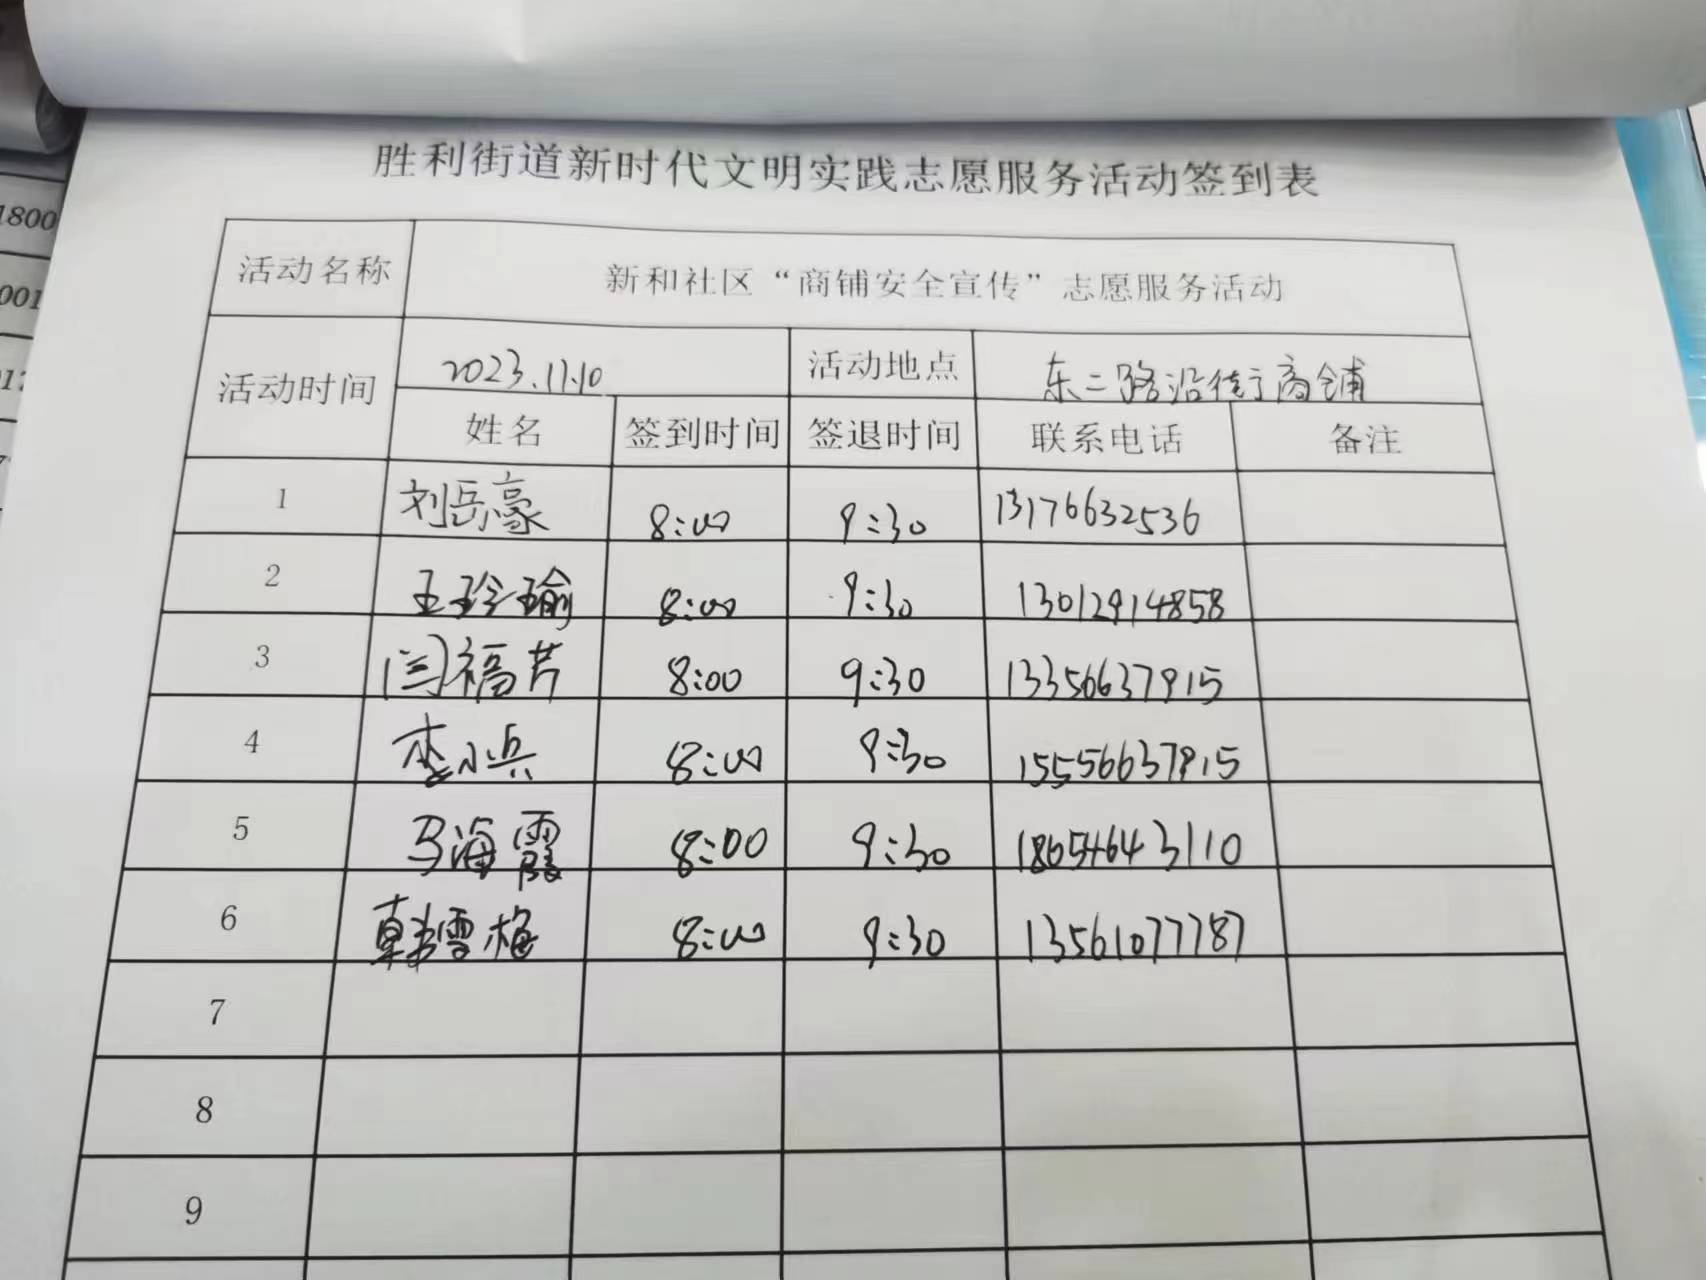 胜利街道新时代文明实践志愿服务活动签到表
活动名称 新和社区“商铺安全宣传”志愿服务活动
活动时间 2023.11.10 活动地点 东二路沿街商铺
姓名 签到时间 签退时间 联系电话 备注
1 刘岳豪 8:00 9:30 13176632536
2 王珍瑜 8:00 9:30 13012914858
3 闫福芹 8:00 9:30 13356637915
4 李小兵 8:00 9:30 15556637915
5 马海霞 8:00 9:30 18654643110
6 韩雪梅 8:00 9:30 13561077787
7
8
9
1800
001